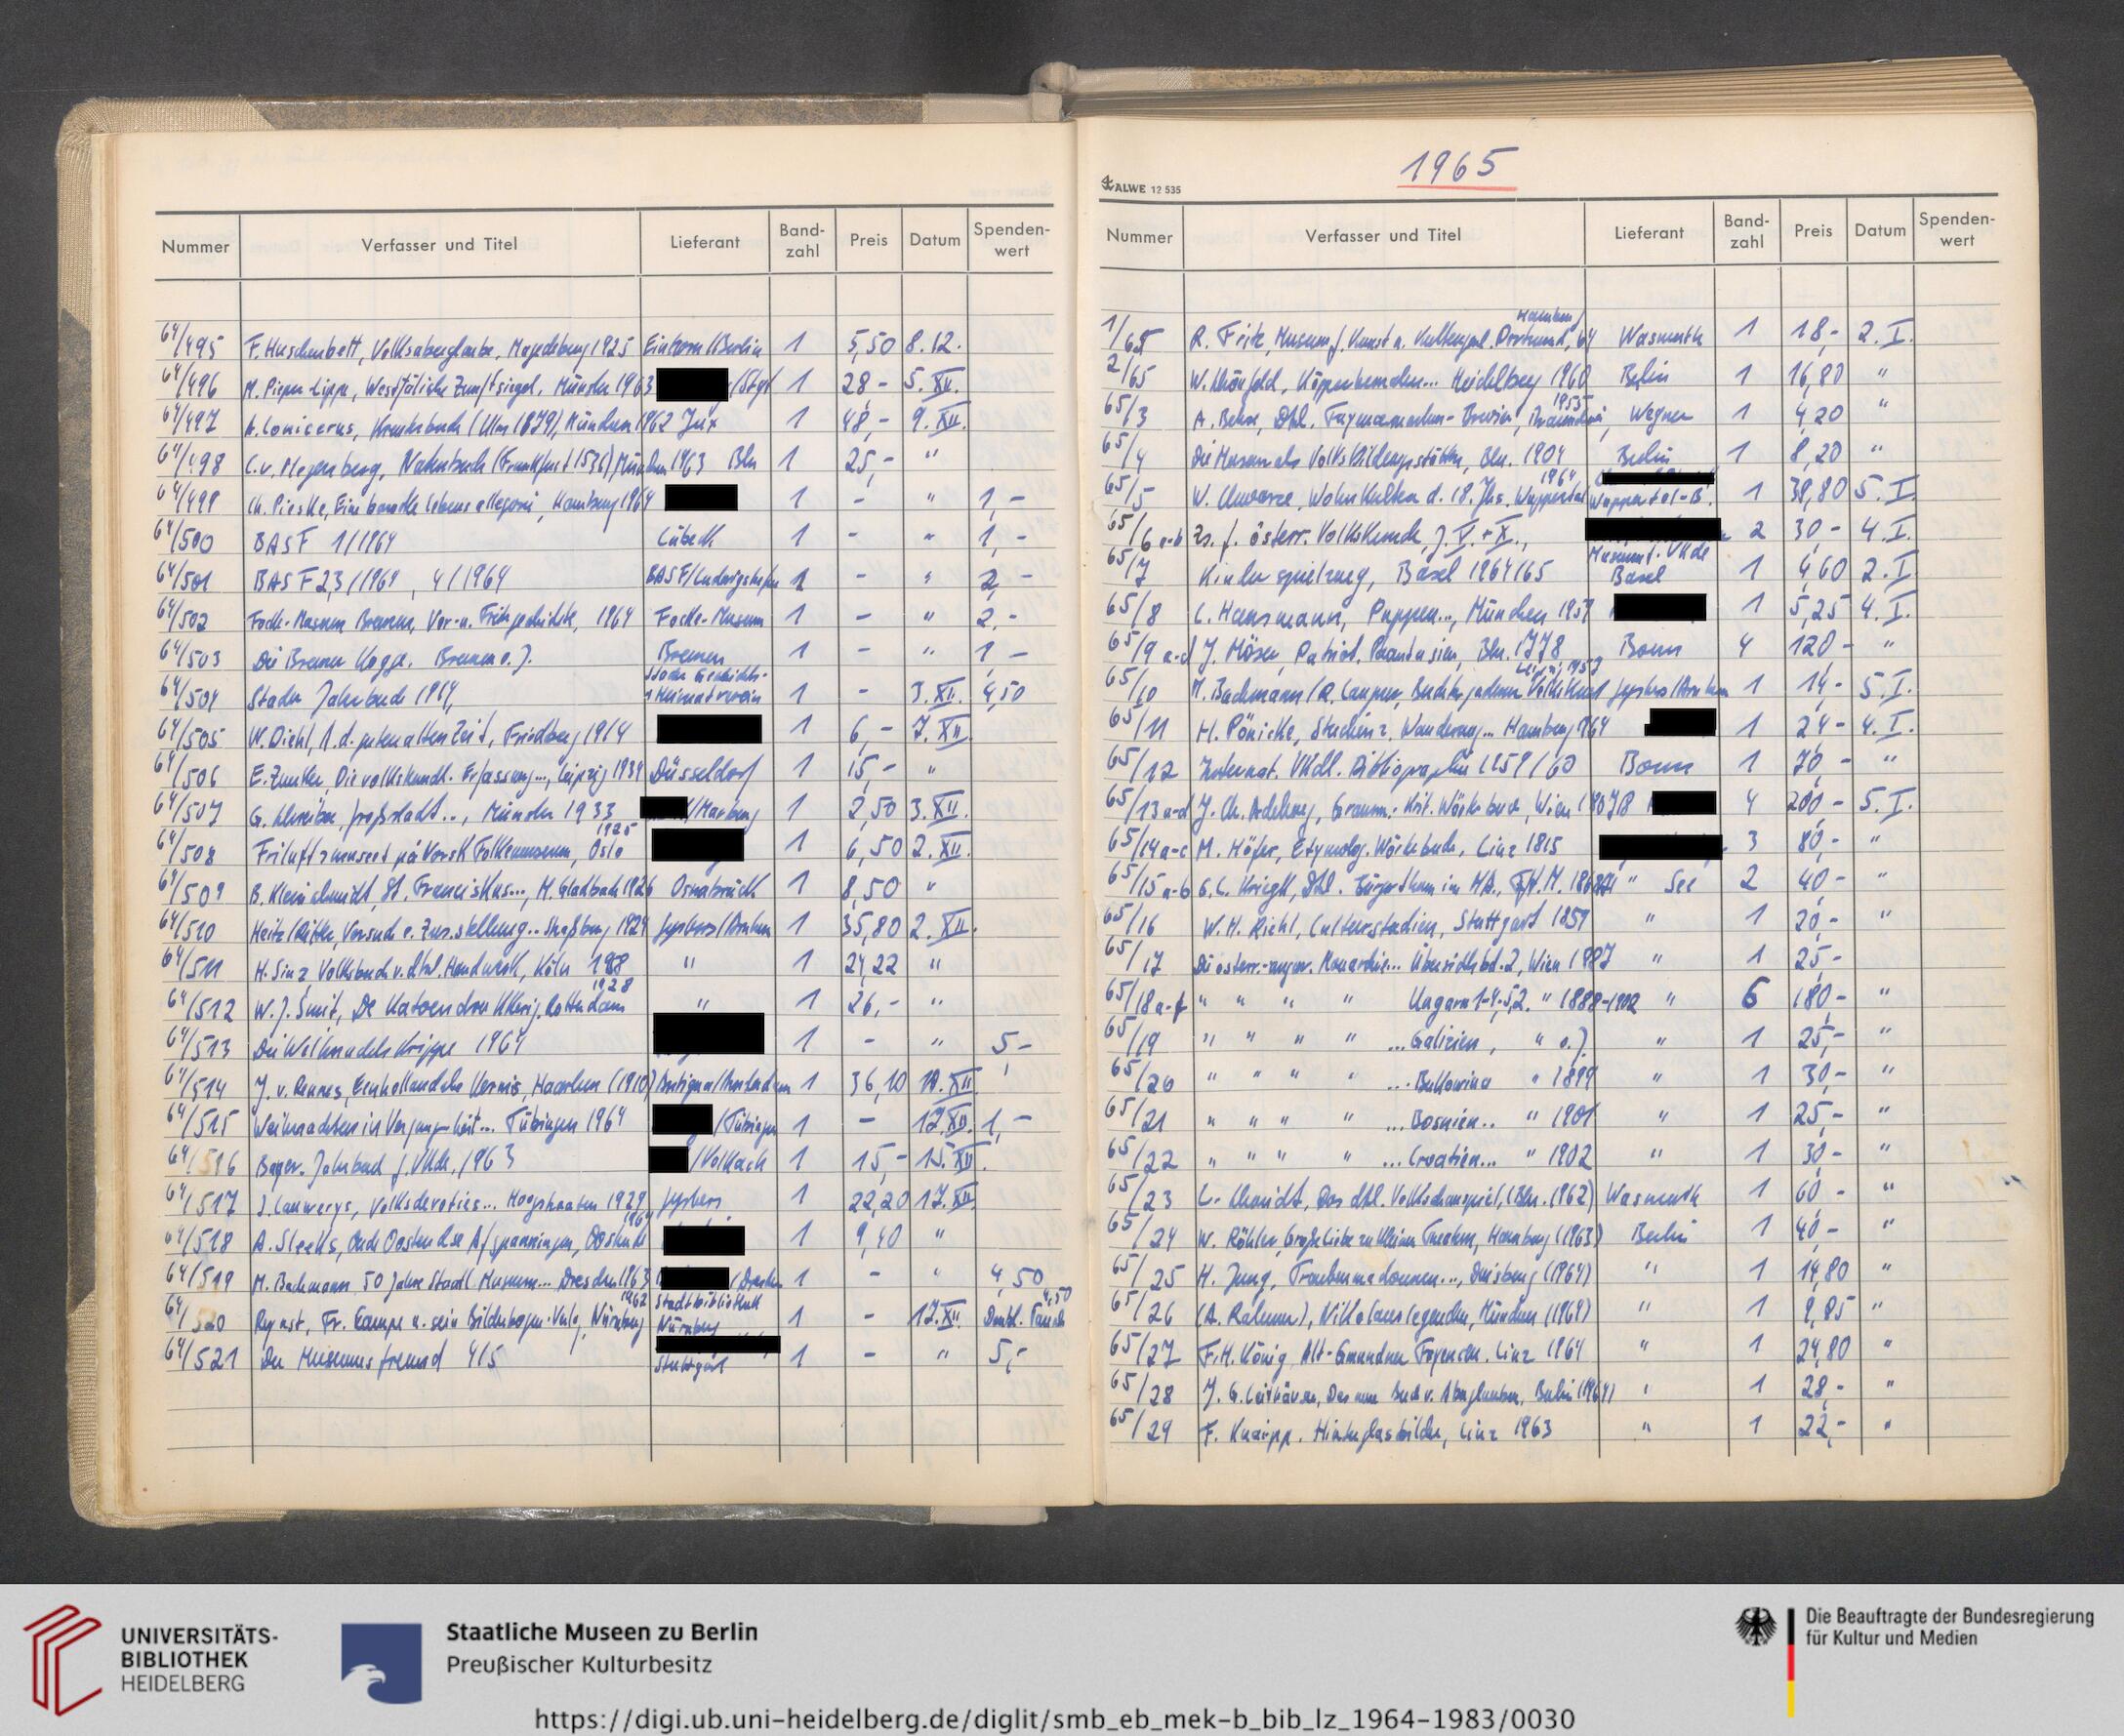 Nummer Verfasser und Titel Lieferant Band-zahl Preis Datum Spenden-wert
64/495 F. Huschenbett, Volksaberglaube, Magdeburg 1925 Einhorn/Berlin 1 5,50 8.12.
64/496 M. Pieper-Lippe, Westfälische Zunftsiegel, Münster 1963 /Stgt 1 28,- 5. XII.
64/497 A. Lonicerus, Kreuterbuch (Ulm 1679), München 1962 Jux 1 48,- 9. XII.
64/498 C. v. Megenberg, Naturbuch (Frankfurt 1536) München 1963 Bln 1 25,- "
64/499 Ch. Pieske, Eine barocke Lebensallegorie, Hamburg 1964 1 - " 1,-
64/500 BASF 1/1964 Lübeck 1 - " 1,-
64/501 BASF 2,3/1964, 4/1964 BASF/Ludwigshafen 1 - " 2,-
64/502 Focke-Museum Bremen, Vor- u. Frühgeschichte, 1964 Focke-Museum 1 - " 2,-
64/503 Die Bremer Kogge. Bremen o. J. Bremen 1 - " 1,-
64/504 Stader Jahrbuch 1964, Stader Geschichts- + Heimatverein 1 - 3. XII. 4,50
64/505 W. Diehl, A. d. guten alten Zeit, Friedberg 1914 1 6,- 7. XII.
64/506 E. Zenker, Die volkskundl. Erfassung..., Leipzig 1934 Düsseldorf 1 15,- "
64/507 G. Schreiber, Großstadt.., Münster 1933 /Marburg 1 2,50 3. XII.
64/508 Friluftsmuseet på Norsk Folkemuseum, Oslo 1925 1 6,50 2. XII.
64/509 B. Kleinschmidt, St. Franciskus..., M. Gladbach 1926 Osnabrück 1 8,50 "
64/510 Heitz/Ritter, Versuch e. Zus.stellung.. Straßburg 1924 Gysbers/Arnhem 1 35,80 2. XII.
64/511 H. Sinz, Volksbuch v. dtsl. Handwerk, Köln " 1 24,22 "
64/512 W. J. Smit, De Katoendrukkerij, Rotterdam 1928 " 1 26,- "
64/513 Die Weihnachtskrippe 1964 1 - " 5,-
64/514 J. v. Rennes, Een hollandsche Kermis, Haarlem (1910) Antiqua/Amsterdam 1 36,10 10. XII
64/515 Weihnachten in Vergangenheit... Tübingen 1964 /Tübingen 1 - 12. XII. 1,-
64/516 Bayer. Jahrbuch f. Vkde. 1963 /Volkach 1 15,- 15. XII.
64/517 J. Lauwerys, Volksdevoties... Hoogstraaten 1929 Gysbers 1 22,20 17. XII.
64/518 A. Sleeks, Oude Oostendse Afspanningen, Oostende 1964 1 9,40 "
64/519 M. Bachmann, 50 Jahre Staatl. Museum... Dresden 1963 /Dresden 1 - " 4,50
64/520 Regnst, Fr. Campe u. sein Bilderbogen-Verlag, Nürnberg 1962 Stadtbibliothek Nürnberg 1 - 17. XII. 4,50
64/521 Der Museumsfreund 4/5 Stuttgart 1 - " 5,-
1965
ALWE 12 535
Nummer Verfasser und Titel Lieferant Band-zahl Preis Datum Spenden-wert
1/65 R. Fritz, Museum f. Kunst u. Kulturgesch. Dortmund, Hamburg 64 Wasmuth 1 18,- 2. I.
2/65 W. Schönfeld, Körperbemalen... Heidelberg 1960 Berlin 1 16,80 "
65/3 A. Behse, Dtsl. Fayencemarken-Brevier, Braunschweig 1955, Wegner 1 4,20 "
65/4 Die Museen als Volksbildungsstätten, Bln. 1904 Berlin 1 8,20 "
65/5 W. Schwarze, Wohnkultur d. 18. Jhs. Wuppertal 1964 Wuppertal-B. 1 38,80 5. I
65/6 a-b Zs. f. österr. Volkskunde, J. V.+X., 2 30,- 4. I.
65/7 Kinderspielzeug, Basel 1964/65 Museum f. Vkde Basel 1 4,60 2. I
65/8 L. Hansmann, Puppen..., München 1959 1 5,25 4. I.
65/9 a-d J. Möser, Patriot. Phantasien, Bln. 1778 Bonn 4 120,- "
65/10 M. Bachmann/R. Langner, Berchtesgadener Volkskunst Leipzig 1957 Gysbers/Arnhem 1 14,- 5. I.
65/11 H. Pönicke, Studien z. Wanderung... Hamburg 1964 1 24,- 4. I.
65/12 Internat. Vkdl. Bibliographie 1959/60 Bonn 1 70,- "
65/13 a-d J. Ch. Adelung, Gramm.-krit. Wörterbuch, Wien 1807/8 4 200,- 5. I.
65/14 a-c M. Höfer, Etymolog. Wörterbuch, Linz 1815 3 80,- "
65/15 a-b G. L. Kriegk, Dtsl. Bürgerthum im MA., Ff/M. 1868/71 " See 2 40,- "
65/16 W. H. Riehl, Culturstudien, Stuttgart 1859 " 1 20,- "
65/17 Die österr.-ungar. Monarchie... Übersichtsbd. 2, Wien 1887 " 1 25,- "
65/18 a-f " " " " Ungarn 1-4, 5,2. " 1888-1902 " 6 180,- "
65/19 " " " " ...Galizien, " o. J. " 1 25,- "
65/20 " " " " ...Bukowina " 1899 " 1 30,- "
65/21 " " " " ...Bosnien.. " 1901 " 1 25,- "
65/22 " " " " ...Croatien... " 1902 " 1 30,- "
65/23 L. Schmidt, Das dtsl. Volksschauspiel, (Bln. (1962) Wasmuth 1 60,- "
65/24 W. Röhler, Große Liebe zu kleinen Theatern, Hamburg (1963) Berlin 1 40,- "
65/25 H. Jung, Traubenmadonnen..., Duisburg (1964) " 1 14,80 "
65/26 (A. Rahmer), Nikolauslegenden, München (1964) " 1 9,85 "
65/27 F. H. König, Alt-Gmundner Fayencen. Linz 1964 " 1 24,80 "
65/28 J. G. Leithäuser, Das neue Buch v. Aberglauben, Berlin (1964) " 1 28,- "
65/29 F. Knaipp, Hinterglasbilder, Linz 1963 " 1 22,- "
UNIVERSITÄTS-
BIBLIOTHEK
HEIDELBERG
Staatliche Museen zu Berlin
Preußischer Kulturbesitz
Die Beauftragte der Bundesregierung
für Kultur und Medien
https://digi.ub.uni-heidelberg.de/diglit/smb_eb_mek-b_bib_lz_1964-1983/0030